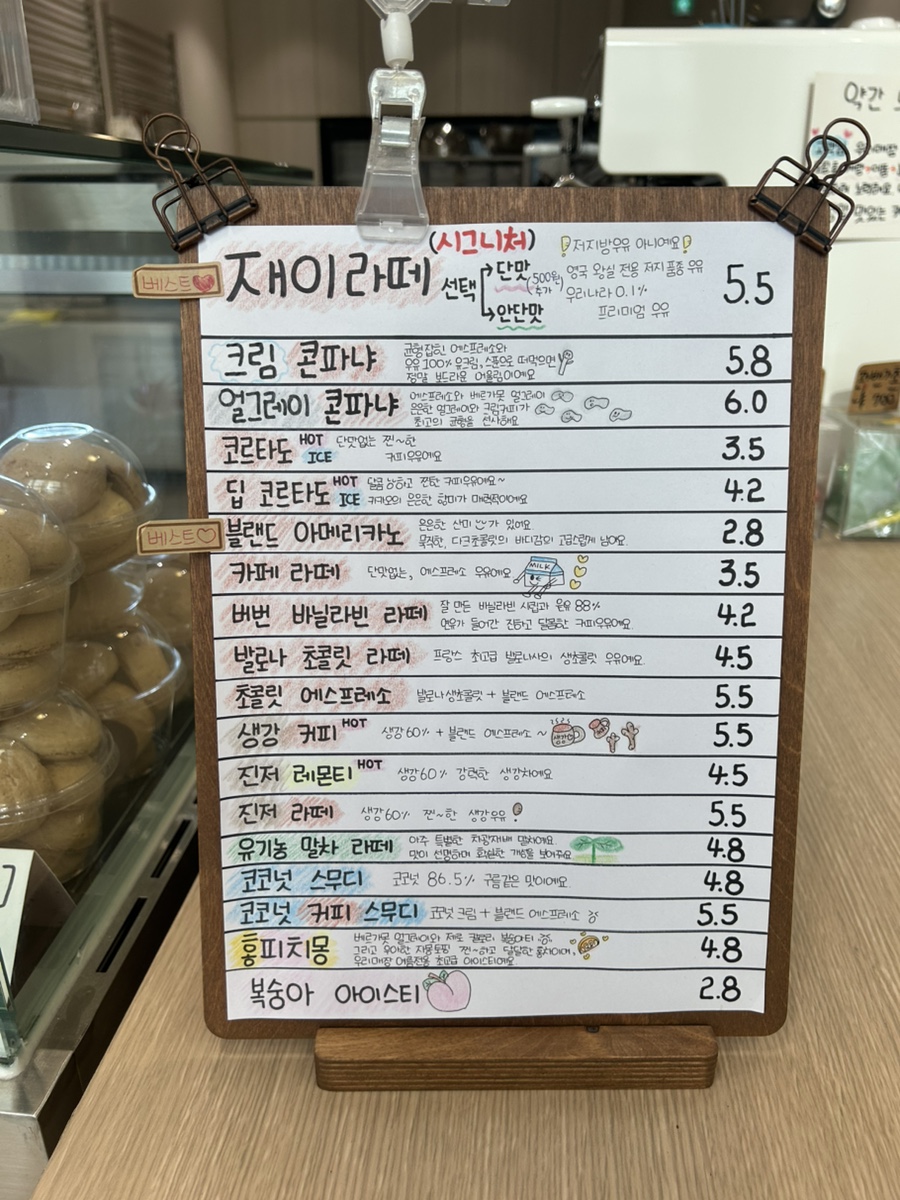 약간
맛있는
베스트
재이라떼
(시그니처)
선택
단맛
(500원 추가)
안단맛
저지방우유 아니예요
영국 왕실 전용 저지 품종 우유
우리나라 0.1%
프리미엄 우유
5.5
크림 콘파냐
균형잡힌 에스프레소와
우유 100% 유크림, 스푼으로 떠먹으면
정말 보드라운 어울림이에요
5.8
얼그레이 콘파냐
에스프레소와 베르가못 얼그레이
은은한 얼그레이와 크림커피가
최고의 균형을 선사해요
6.0
코르타도 HOT ICE
단맛없는 찐~한
커피우유예요
3.5
딥 코르타도 HOT ICE
달콤 쌉쌀하고 찐한 커피우유예요~
카카오의 은은한 향미가 매력적이에요
4.2
베스트
블랜드 아메리카노
은은한 산미가 있어요
묵직한, 다크초콜릿의 바디감이 고급스럽게 남아요.
2.8
카페 라떼
단맛없는, 에스프레소 우유예요
MILK
3.5
버번 바닐라빈 라떼
잘 만든 바닐라빈 시럽과 원유 88%
연유가 들어간 진하고 달콤한 커피우유예요.
4.2
발로나 초콜릿 라떼
프랑스 최고급 발로나사의 생초콜릿 우유예요.
4.5
초콜릿 에스프레소
발로나생초콜릿 + 블랜드 에스프레소
5.5
생강 커피 HOT
생강 60% + 블랜드 에스프레소 ~
생강
5.5
진저 레몬티 HOT
생강60% 강력한 생강차예요
4.5
진저 라떼
생강60% 찐~한 생강우유
5.5
유기농 말차 라떼
아주 특별한 차광재배 말차예요
맛이 선명하며 확실한 개성을 보여주요
4.8
코코넛 스무디
코코넛 86.5% 구름같은 맛이에요.
4.8
코코넛 커피 스무디
코코넛 크림 + 블랜드 에스프레소
5.5
홍피치몽
베르가못 얼그레이와 제로 칼로리 복숭아티
그리고 우아한 자몽토핑 찐~하고 달달한 홍차이며,
우리매장 여름전용 초고급 아이스티예요
4.8
복숭아 아이스티
2.8